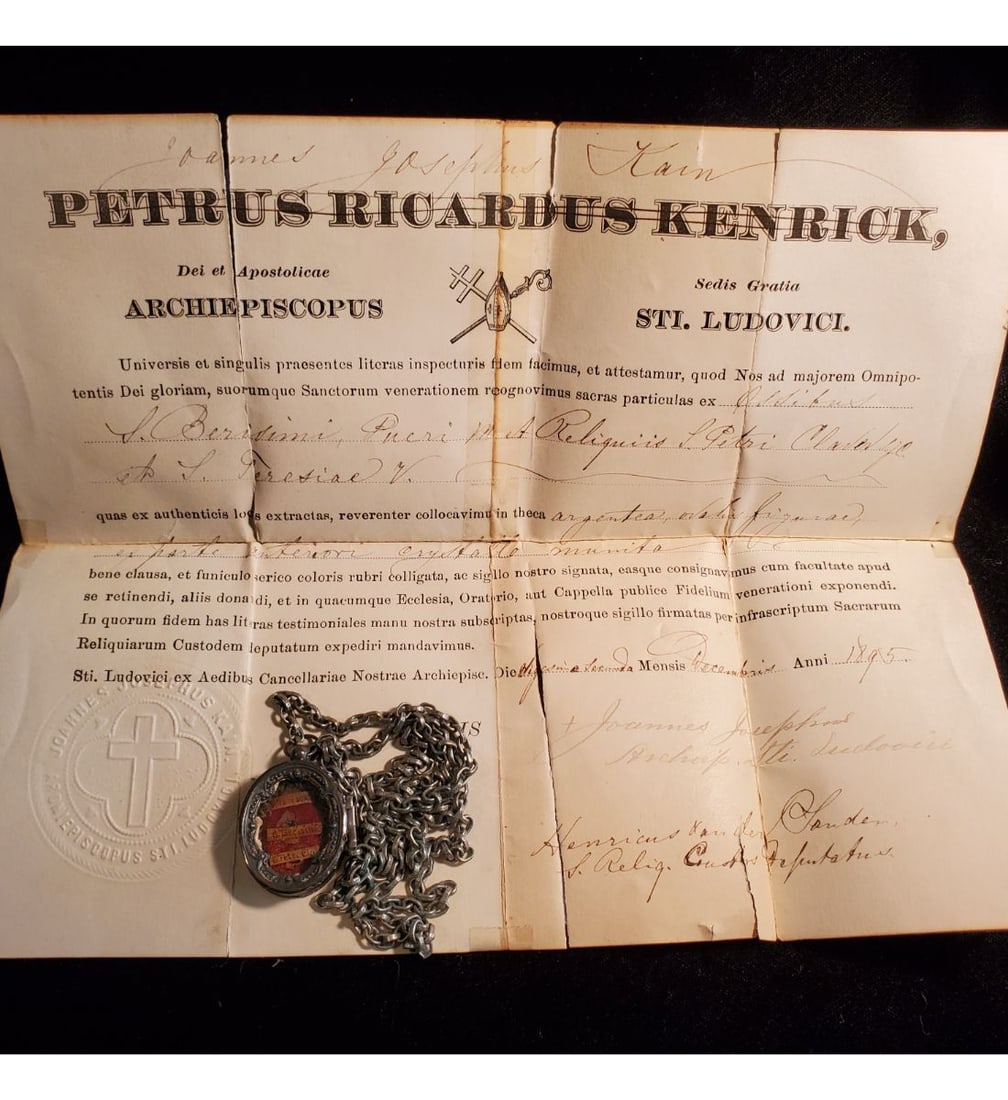 Joannes Josephus Kain
PETRUS RICARDUS KENRICK,
Dei et Apostolicae
Sedis Gratia
ARCHIEPISCOPUS
STI. LUDOVICI.
Universis et singulis praesentes literas inspecturis fidem facimus, et attestamur, quod Nos ad majorem Omnipo-
tentis Dei gloriam, suorumque Sanctorum venerationem recognovimus sacras particulas ex Ossibus
S. Pueri et Reliquiis S Petri
et S. Teresiae V.
quas ex authenticis locis extractas, reverenter collocavimus in theca argentea, ovalis figurae,
ex parte anteriori crystallo munita
bene clausa, et funiculo serico coloris rubri colligata, ac sigillo nostro signata, easque consignavimus cum facultate apud
se retinendi, aliis donandi, et in quacumque Ecclesia, Oratorio, aut Cappella publice Fidelium venerationi exponendi.
In quorum fidem has literas testimoniales manu nostra subscriptas, nostroque sigillo firmatas per infrascriptum Sacrarum
Reliquiarum Custodem deputatum expediri mandavimus.
Sti. Ludovici ex Aedibus Cancellariae Nostrae Archiepisc. Die vigesima secunda Mensis Decembris Anni 1895.
JOANNES JOSEPHUS KAIN
ARCHIEPISCOPUS STI. LUDOVICI
IS
+ Joannes Josephus
Archiep. Sti. Ludovici
Henricus Van der Sanden,
S. Reliq. Custos Deputatus